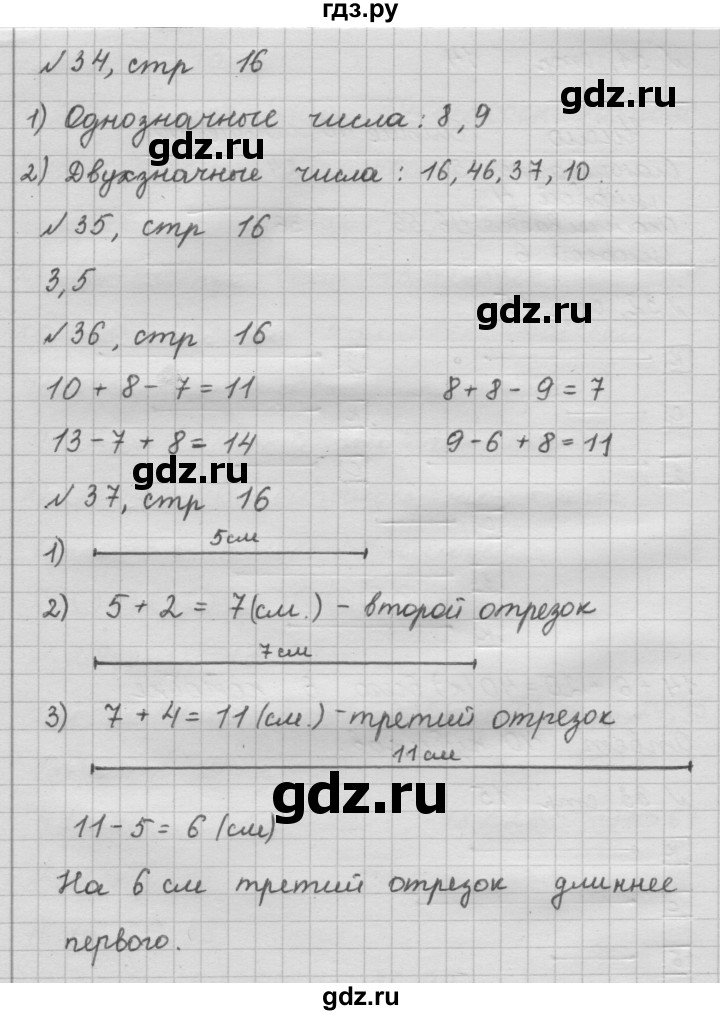 гдз.ру
№34, стр 16
1) Однозначные числа: 8, 9
gdz.ru
gdz.ru
2) Двухзначные числа: 16, 46, 37, 10.
№35, стр 16
3,5
gdz.ru
№36, стр 16
10 + 8 - 7 = 11 8 + 8 - 9 = 7
13 - 7 + 8 = 14 9 - 6 + 8 = 11
gdz.ru
№37, стр 16
1) 5 см
2) 5 + 2 = 7 (см.) - второй отрезок
7 см
3) 7 + 4 = 11 (см.) - третий отрезок
11 см
gdz.ru
11 - 5 = 6 (см)
На 6 см третий отрезок длиннее
первого.
gdz.ru